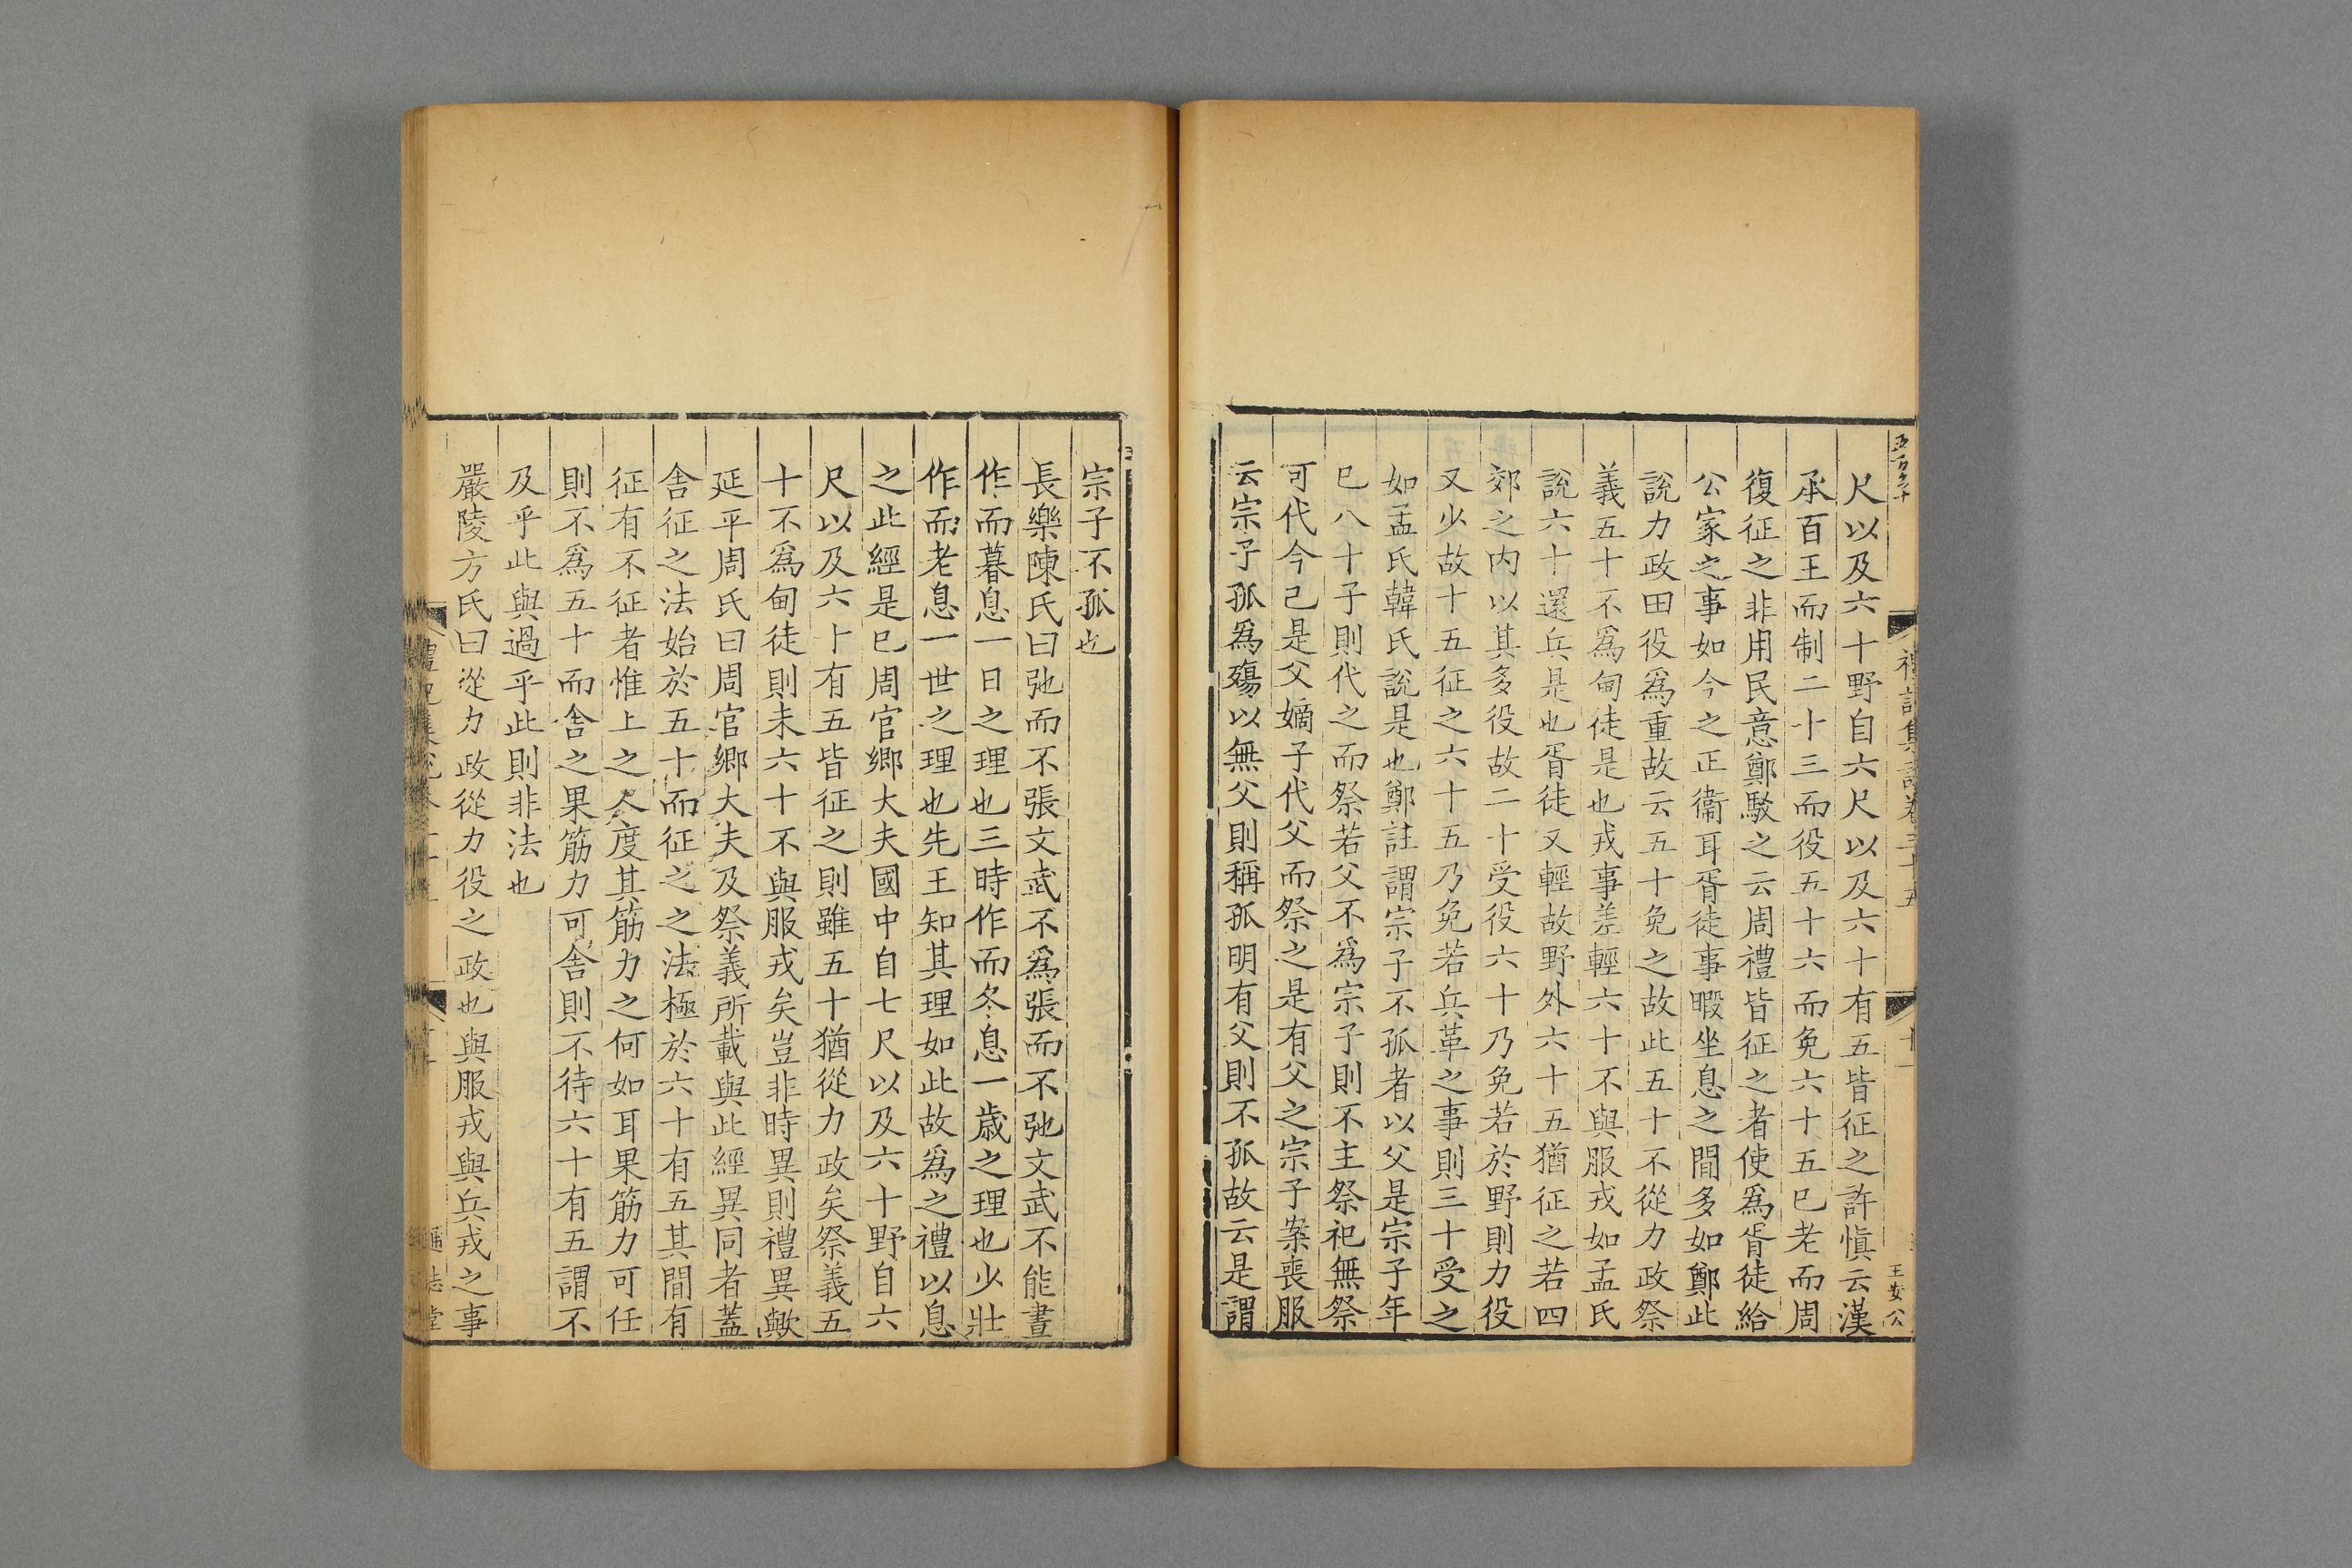 尺以及六十野自六尺以及六十有五皆征之許慎云漢
承百王而制二十三而役五十六而免六十五已老而周
復征之非用民意鄭駁之云周禮皆征之者使爲胥徒給
公家之事如今之正衞耳胥徒事暇坐息之閒多如鄭此
說力政田役爲重故云五十免之故此五十不從力政祭
義五十不爲甸徒是也戎事差輕六十不與服戎如孟氏
說六十還兵是也胥徒又輕故野外六十五猶征之若四
郊之内以其多役故二十受役六十乃免若於野則力役
又少故十五征之六十五乃免若兵革之事則三十受之
如孟氏韓氏說是也鄭註謂宗子不孤者以父是宗子年
已八十子則代之而祭若父不爲宗子則不主祭祀無祭
可代今己是父嫡子代父而祭之是有父之宗子案喪服
云宗子孤爲殤以無父則稱孤明有父則不孤故云是謂
宗子不孤也
長樂陳氏曰弛而不張文武不爲張而不弛文武不能晝
作而暮息一日之理也三時作而冬息一歲之理也少壯
作而老息一世之理也先王知其理如此故爲之禮以息
之此經是已周官鄉大夫國中自七尺以及六十野自六
尺以及六十有五皆征之則雖五十猶從力政矣祭義五
十不爲甸徒則未六十不與服戎矣豈非時異則禮異歟
延平周氏曰周官鄉大夫及祭義所載與此經異同者蓋
舍征之法始於五十而征之之法極於六十有五其閒有
征有不征者惟上之人度其筋力之何如耳果筋力可任
則不爲五十而舍之果筋力可舍則不待六十有五謂不
及乎此與過乎此則非法也
嚴陵方氏曰從力政從力役之政也與服戎與兵戎之事
禮記集說卷三十五
十一
王安公
通志堂